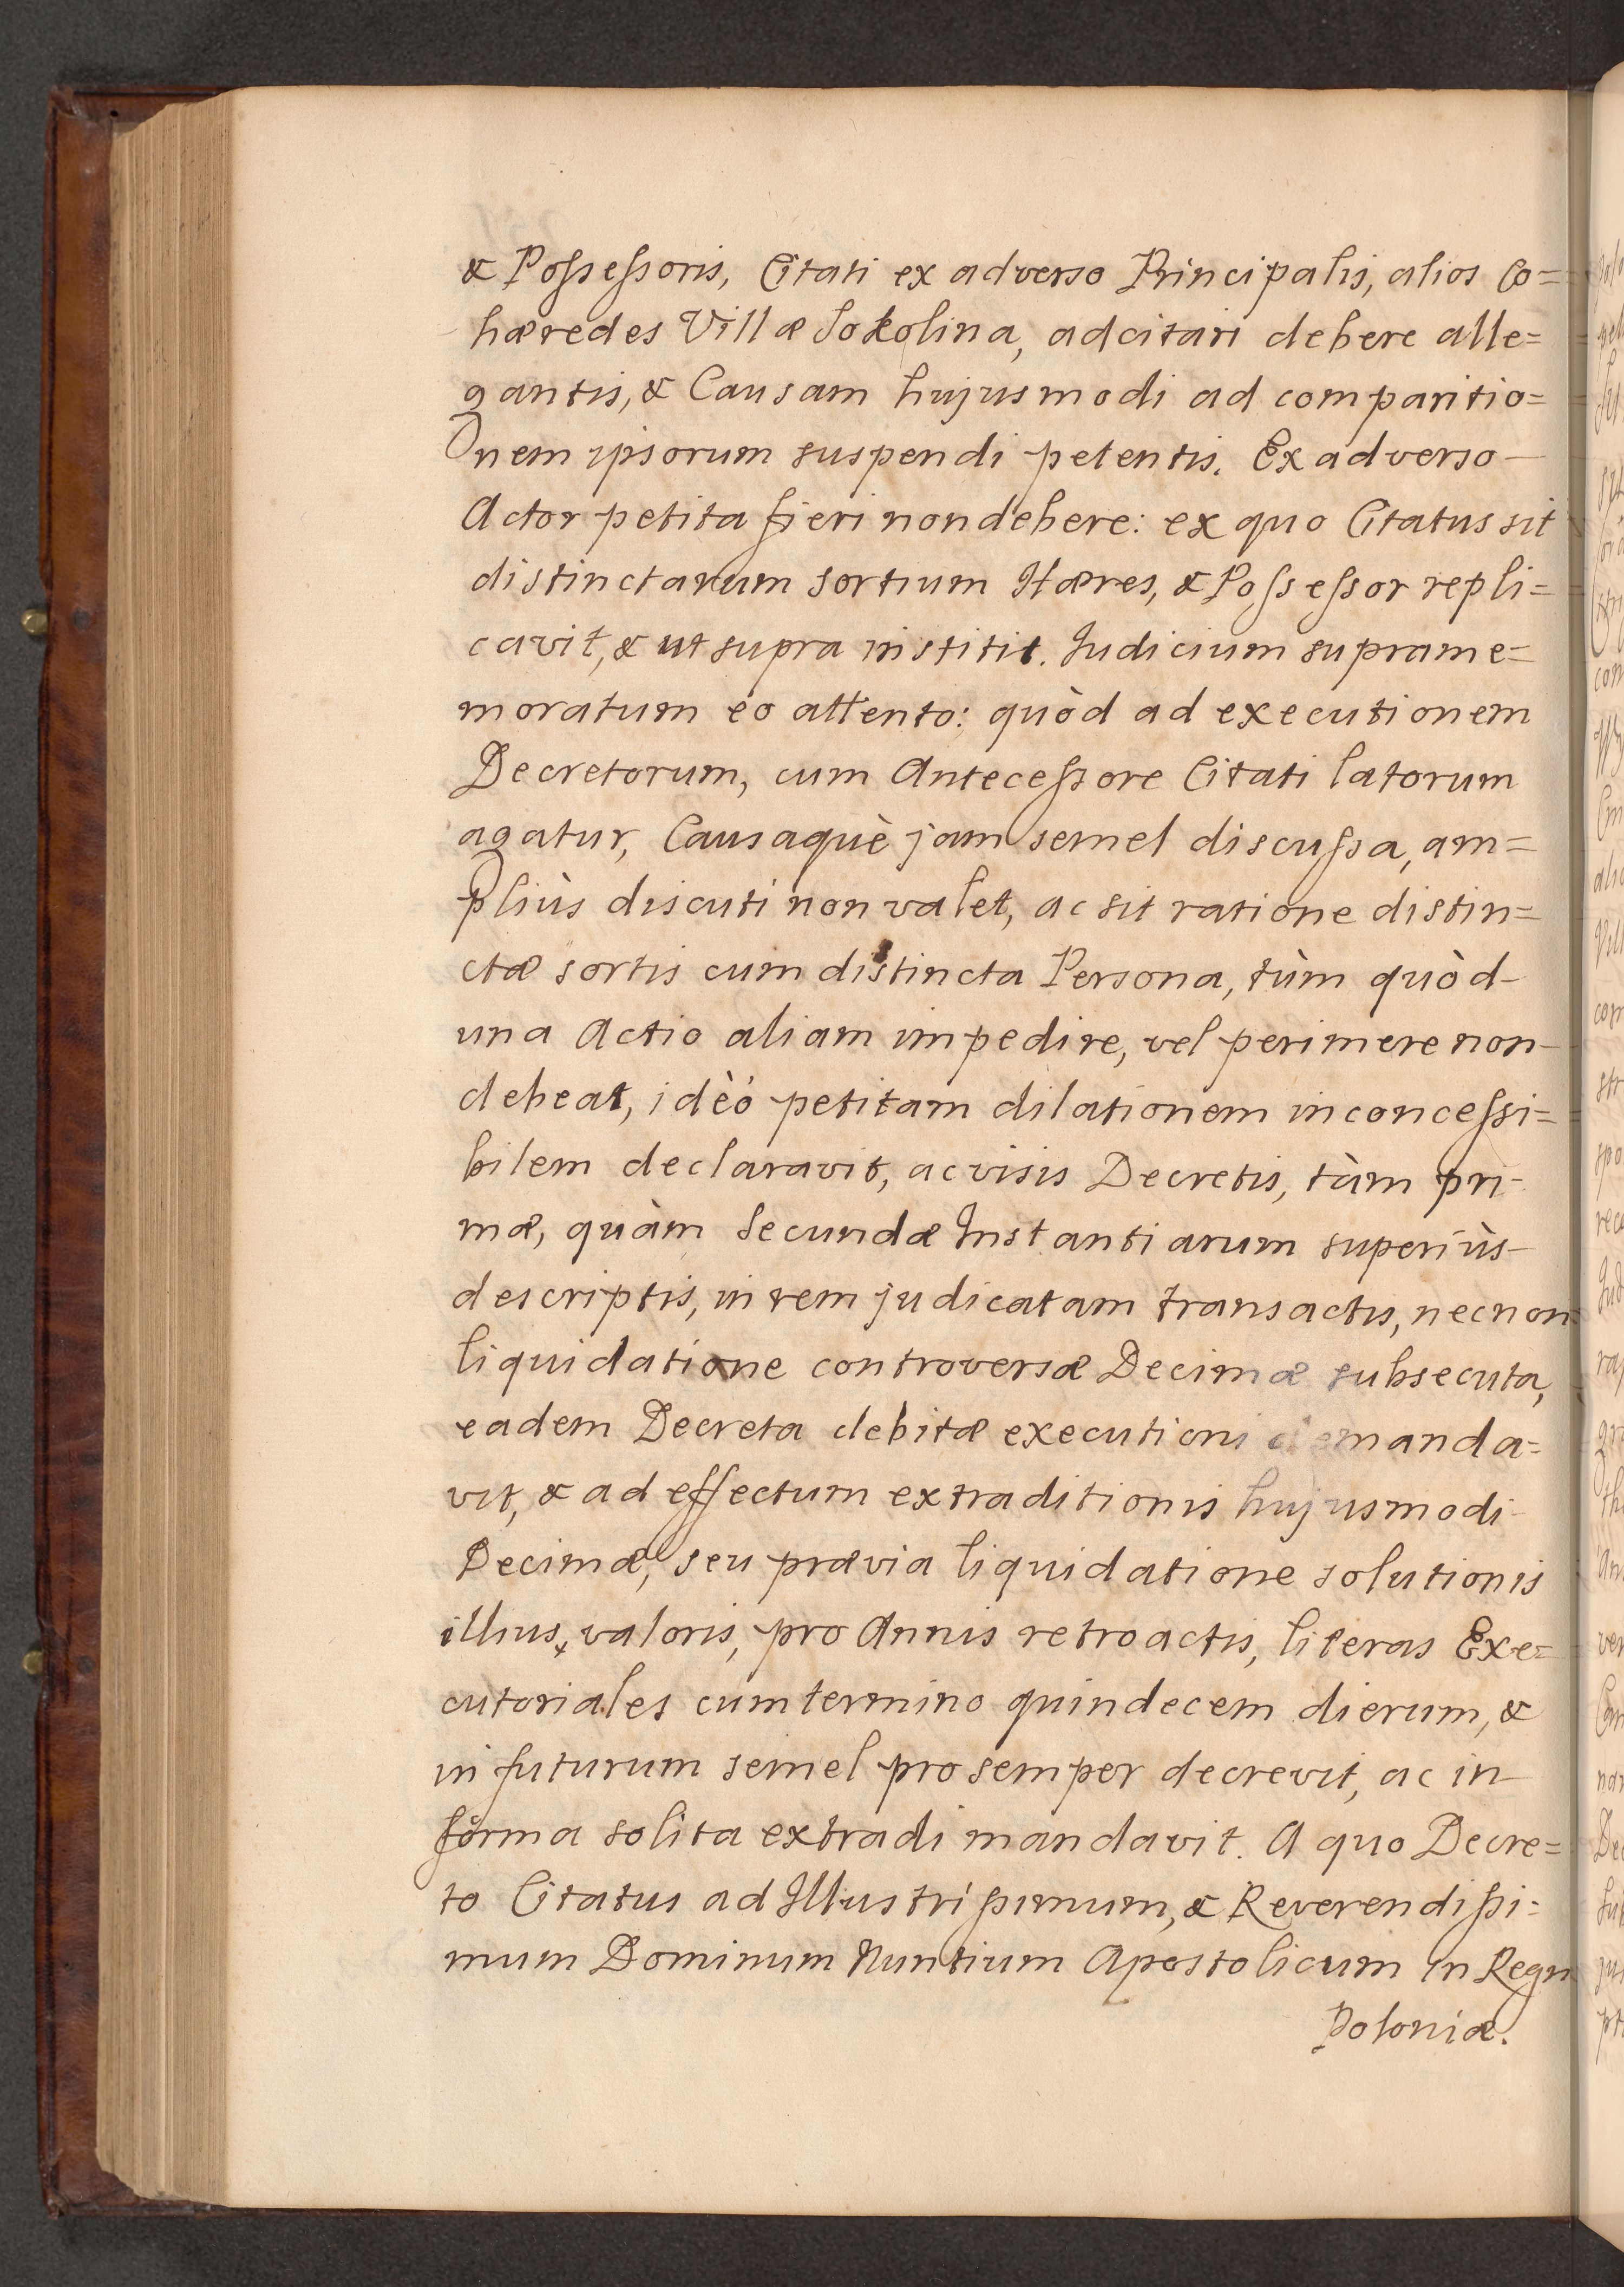 & Possessoris, Citati ex adverso Principalis, alios Co=
hæredes Villæ Sokolina, adcitari debere alle=
gantis, & Causam hujusmodi ad comparitio=
nem ipsorum suspendi petentis. Ex adverso
Actor petita fieri non debere: ex quo Citatus sit
distinctarum sortium Hæres, & Possessor repli=
cavit, & ut supra institit. Judicium suprame=
moratum eo attento: quòd ad executionem
Decretorum, cum Antecessore Citati latorum
agatur, Causaquè jam semel discussa, am=
pliùs discuti non valet, ac sit ratione distin=
ctæ sortis cum distincta Persona, tùm quòd
una Actio aliam impedire, vel perimere non
debeat, idèò petitam dilationem inconcessi=
bilem declaravit, ac visis Decretis, tàm pri-
mæ, quàm Secundæ Instantiarum superiùs
descriptis, in rem judicatam transactis, necnon
liquidatione controversæ Decimæ subsecuta,
eadem Decreta debitæ executioni demanda=
vit, & ad effectum extraditionis hujusmodi
Decimæ, seu prævia liquidatione solutionis
illius, valoris, pro Annis retroactis, literas Exe=
cutoriales cum termino quindecem dierum, &
in futurum semel pro semper decrevit, ac in
forma solita extradi mandavit. A quo Decre=
to Citatus ad Illustrissimum, & Reverendissi=
mum Dominum Nuntium Apostolicum in Regn
Poloniæ.